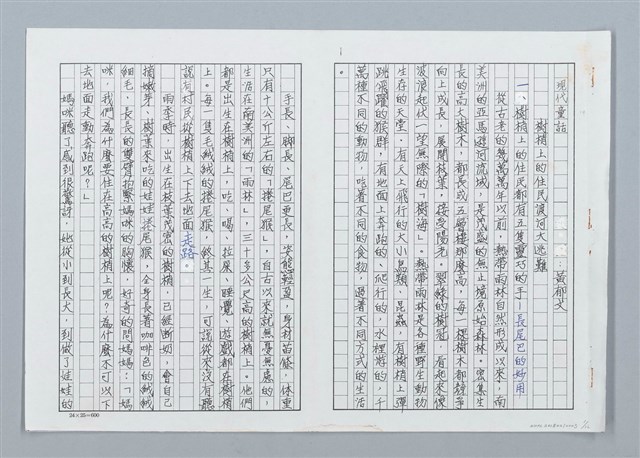 現代童話
樹梢上的住民渡河大逃難
黃郁文
一、樹梢上的住民都有五隻靈巧的手—長尾巴的妙用
從古老的幾萬萬年以前,熱帶雨林自然形成以來,南
美洲的亞馬遜河流域,是茂盛的無止境原始森林,密集生
長的高大樹木,都長或五層樓那麼高,每一棵樹木都競爭
向上成長,展開枝葉,接受陽光。翠綠的樹冠,看起來像
波浪起伏一望無際的「樹海」。熱帶雨林是各種野生動物
生存的天堂。有天上飛行的大小鳥類、昆蟲,有樹梢上彈
跳飛躍的猴群,有地面上奔跑的、爬行的,水裡游的,千
萬種不同的動物,吃著不同的食物,過著不同方式的生活
。
手長、腳長、尾巴更長,姿態輕盈,身材苗條,体重
只有十公斤左右的「捲尾猴」,自古以來就無憂無慮的,
生活在南美洲的「雨林」,三十多公尺高的樹梢上。他們
都是出生在樹梢上,吃、喝、拉屎、睡覺、遊戲都在樹梢
上。每一隻毛絨絨的捲尾猴,終其一生,可說從來沒有聽
說有村民從樹梢上下去地面走路。
雨季時,出生在枝葉茂密的樹梢,已經斷奶,會自己
摘嫩芽、樹葉來吃的娃娃捲尾猴,全身長着咖啡色的絨絨
細毛,長長的雙臂抱緊媽咪的胸懷,好奇的問媽媽:「媽
咪,我們為什麼要住在高高的樹梢上呢?為什麼不可以下
去地面走動奔跑呢?」
媽咪聽了,感到很驚訝,她從小到長大,到做了娃娃的
24×25=600